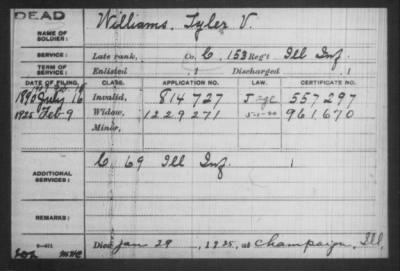 DEAD
NAME OF SOLDIER:
Williams, Tyler V.
SERVICE:
Late rank, Co. C, 153 Reg't Ill Inf.
TERM OF SERVICE:
Enlisted , 1 Discharged , 1
DATE OF FILING. CLASS. APPLICATION NO. LAW. CERTIFICATE NO.
1890 July 16 Invalid, 814727 557297
1925 Feb-9 Widow, 1229271 5-1-20 961670
Minor,
ADDITIONAL SERVICES:
C. 69 Ill Inf. 1
REMARKS:
Died Jan 29, 1925, at Champaign, Ill.